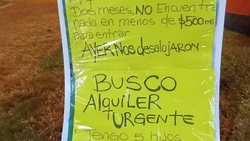 Dos meses, NO Encuentro
nada en menos de $500mil
para entrar
AYER Nos desalojaron
BUSCO
Alquiler
URGENTE
Tengo 5 hijos